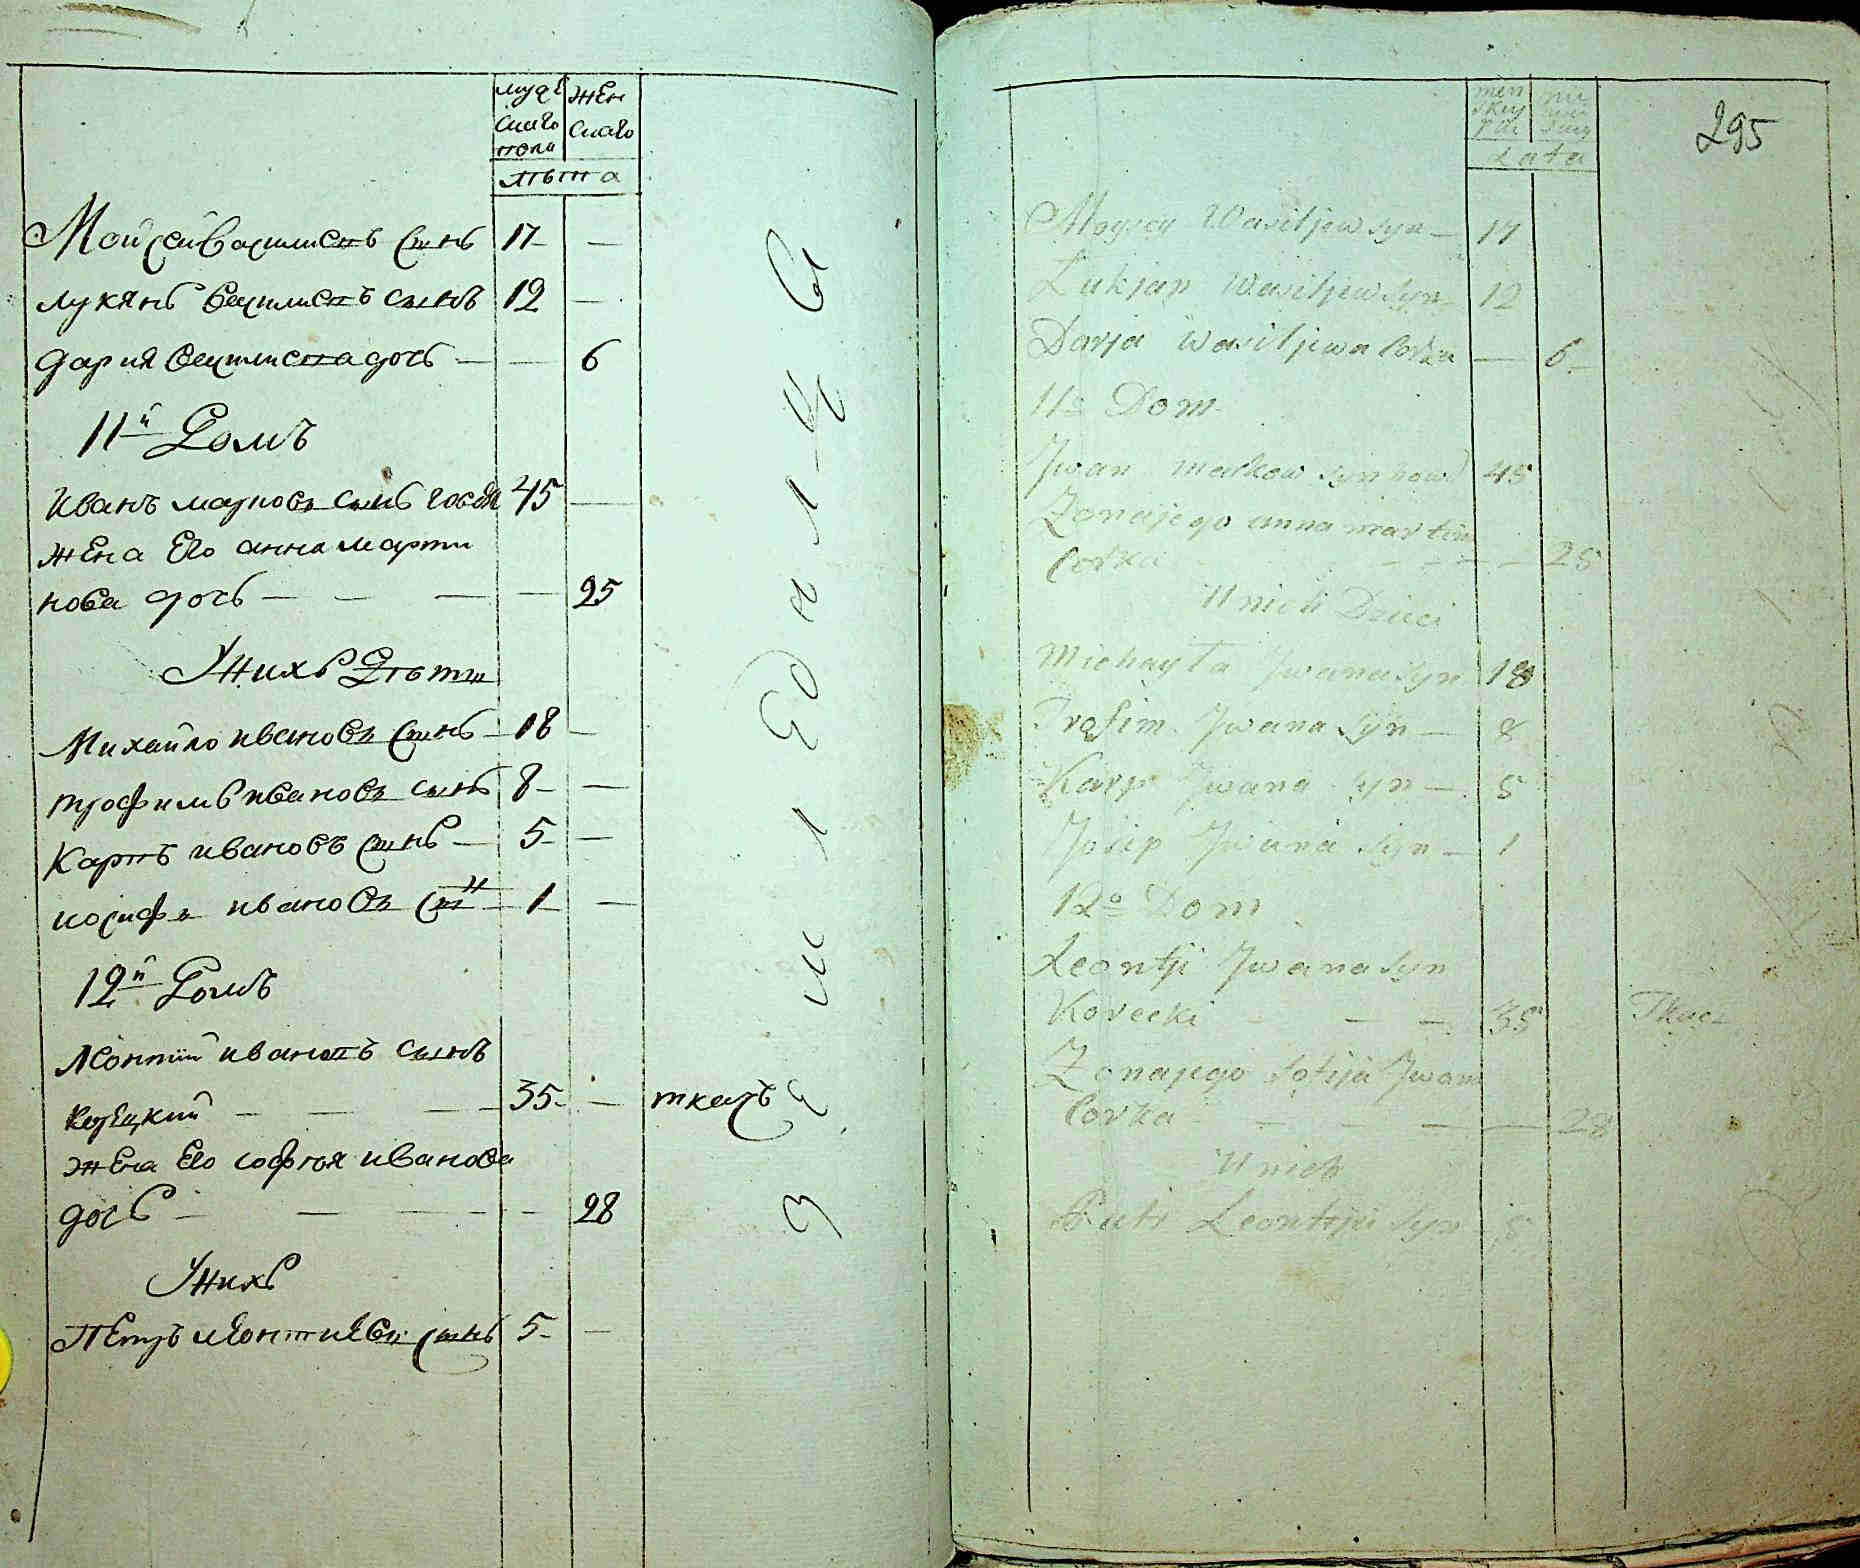 муже
скаго
пола
жен
скаго
лѣта
Мойсей Василиевъ сынъ 17 —
лукянъ василиевъ сынъ 12 —
дария василиева дочь — — 6
11й Домъ
Иванъ марковъ сынъ 45 —
жена Его анна марти
нова дочь — — — — 25
У нихъ Дѣти
Михайло ивановъ сынъ — 18 —
трофимъ ивановъ сынъ 8 — —
Карпъ ивановъ сынъ — 5 — —
иосифъ ивановъ сын — 1 — —
12й Домъ
Леонтий ивановъ сынъ
Корецкий — — — 35 — — ткачъ
жена Его софья иванова
дочь — — — — — 28
У нихъ
Петръ леонтиевъ сынъ 5 — —
295
Lata
Moysey Wasiljew syn — 17
Lukjan Wasiljew syn 12
Darja Wasiljewa Corka — 6 —
11o Dom
Jwan markow syn 45
Zonajego anna martin
Corka — — — — 25
U nich Dzieci
Michayła Jwana syn 18
Trofim Jwana syn — 8
Karp Jwana syn — 5
Josip Jwana syn — 1
12o Dom
Leontji Jwana syn
Korecki — — — 35 Tkacz
Zonajego Sofija Jwana
Corka — — — — 28
U nich
Piotr Leontiji syn 5